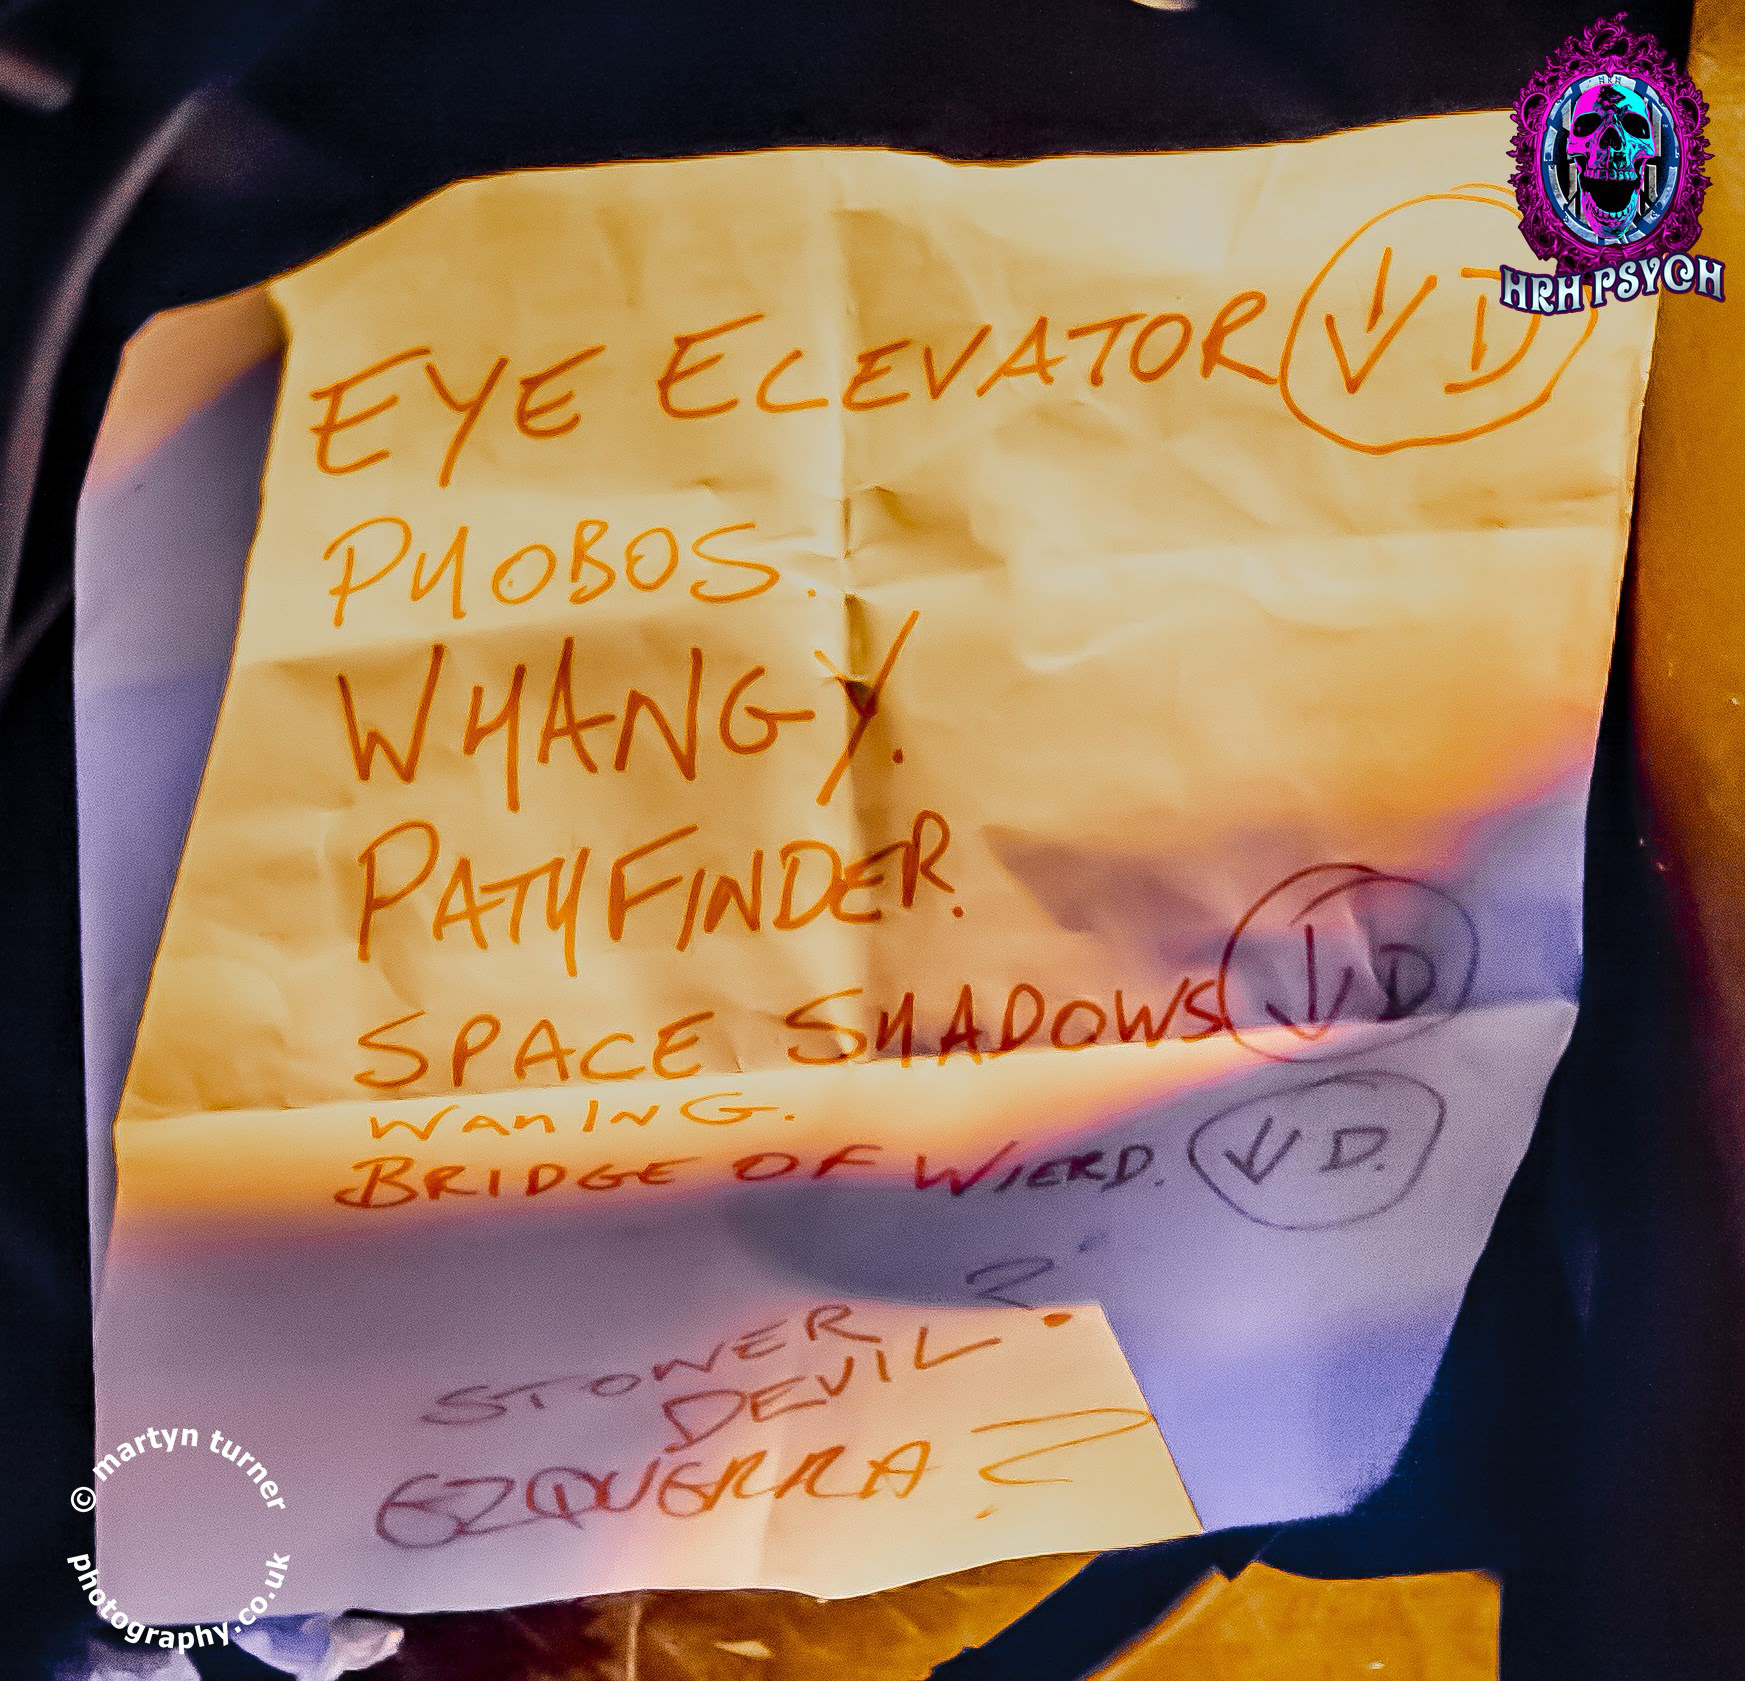 HRH PSYCH
EYE ELEVATOR ↓ D
PHOBOS.
WHANGY.
PATHFINDER.
SPACE SHADOWS ↓ D
WANING.
BRIDGE OF WIERD. ↓ D.
STONER
DEVIL ?
EZQUERRA ?
© martyn turner
photography.co.uk